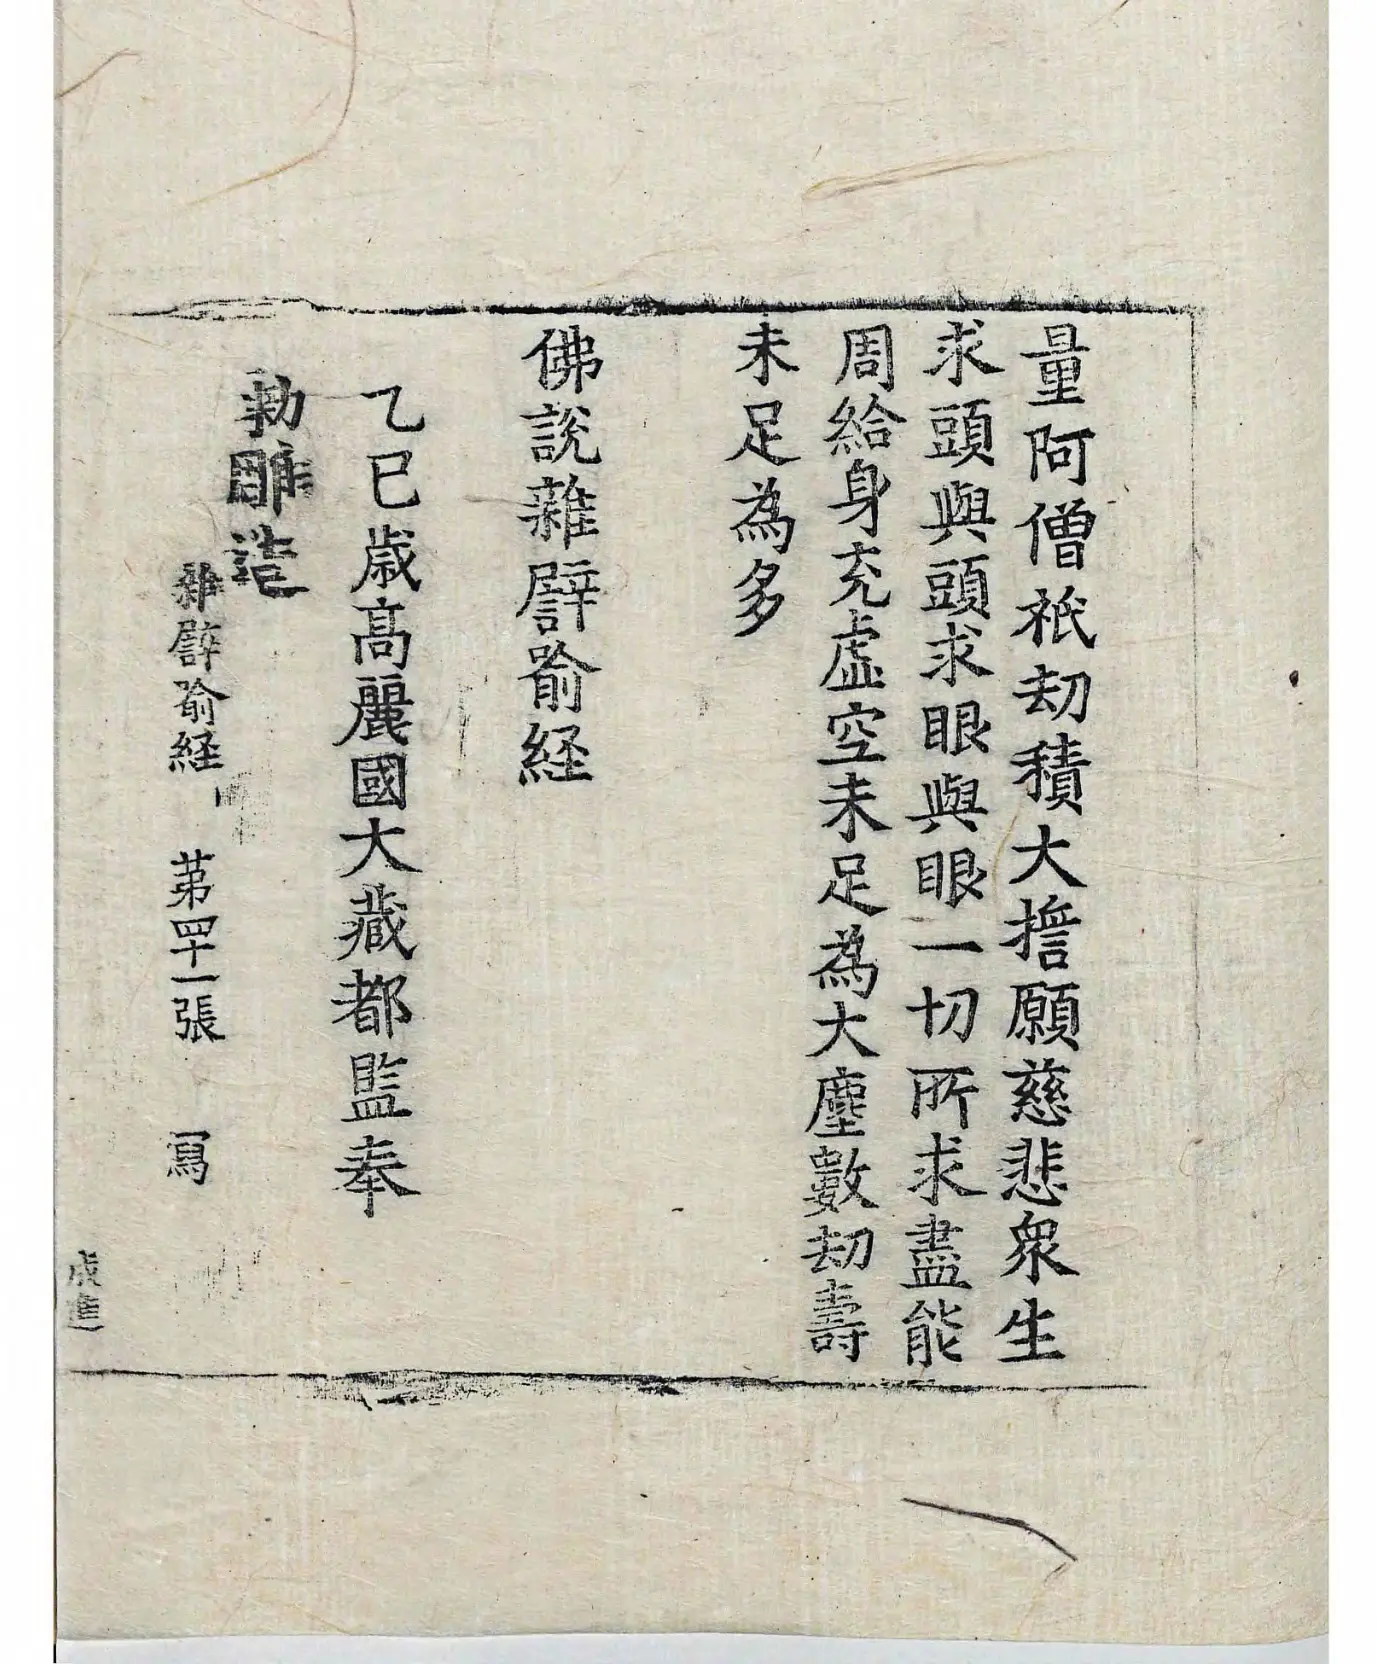 量阿僧祇劫積大擔願慈悲衆生
求頭與頭求眼與眼一切所求盡能
周給身充虛空未足為大塵數劫壽
未足為多
佛說雜譬喻経
乙巳歲高麗國大藏都監奉
勅雕造
雜譬喻経 苐四十一張 寫
成進